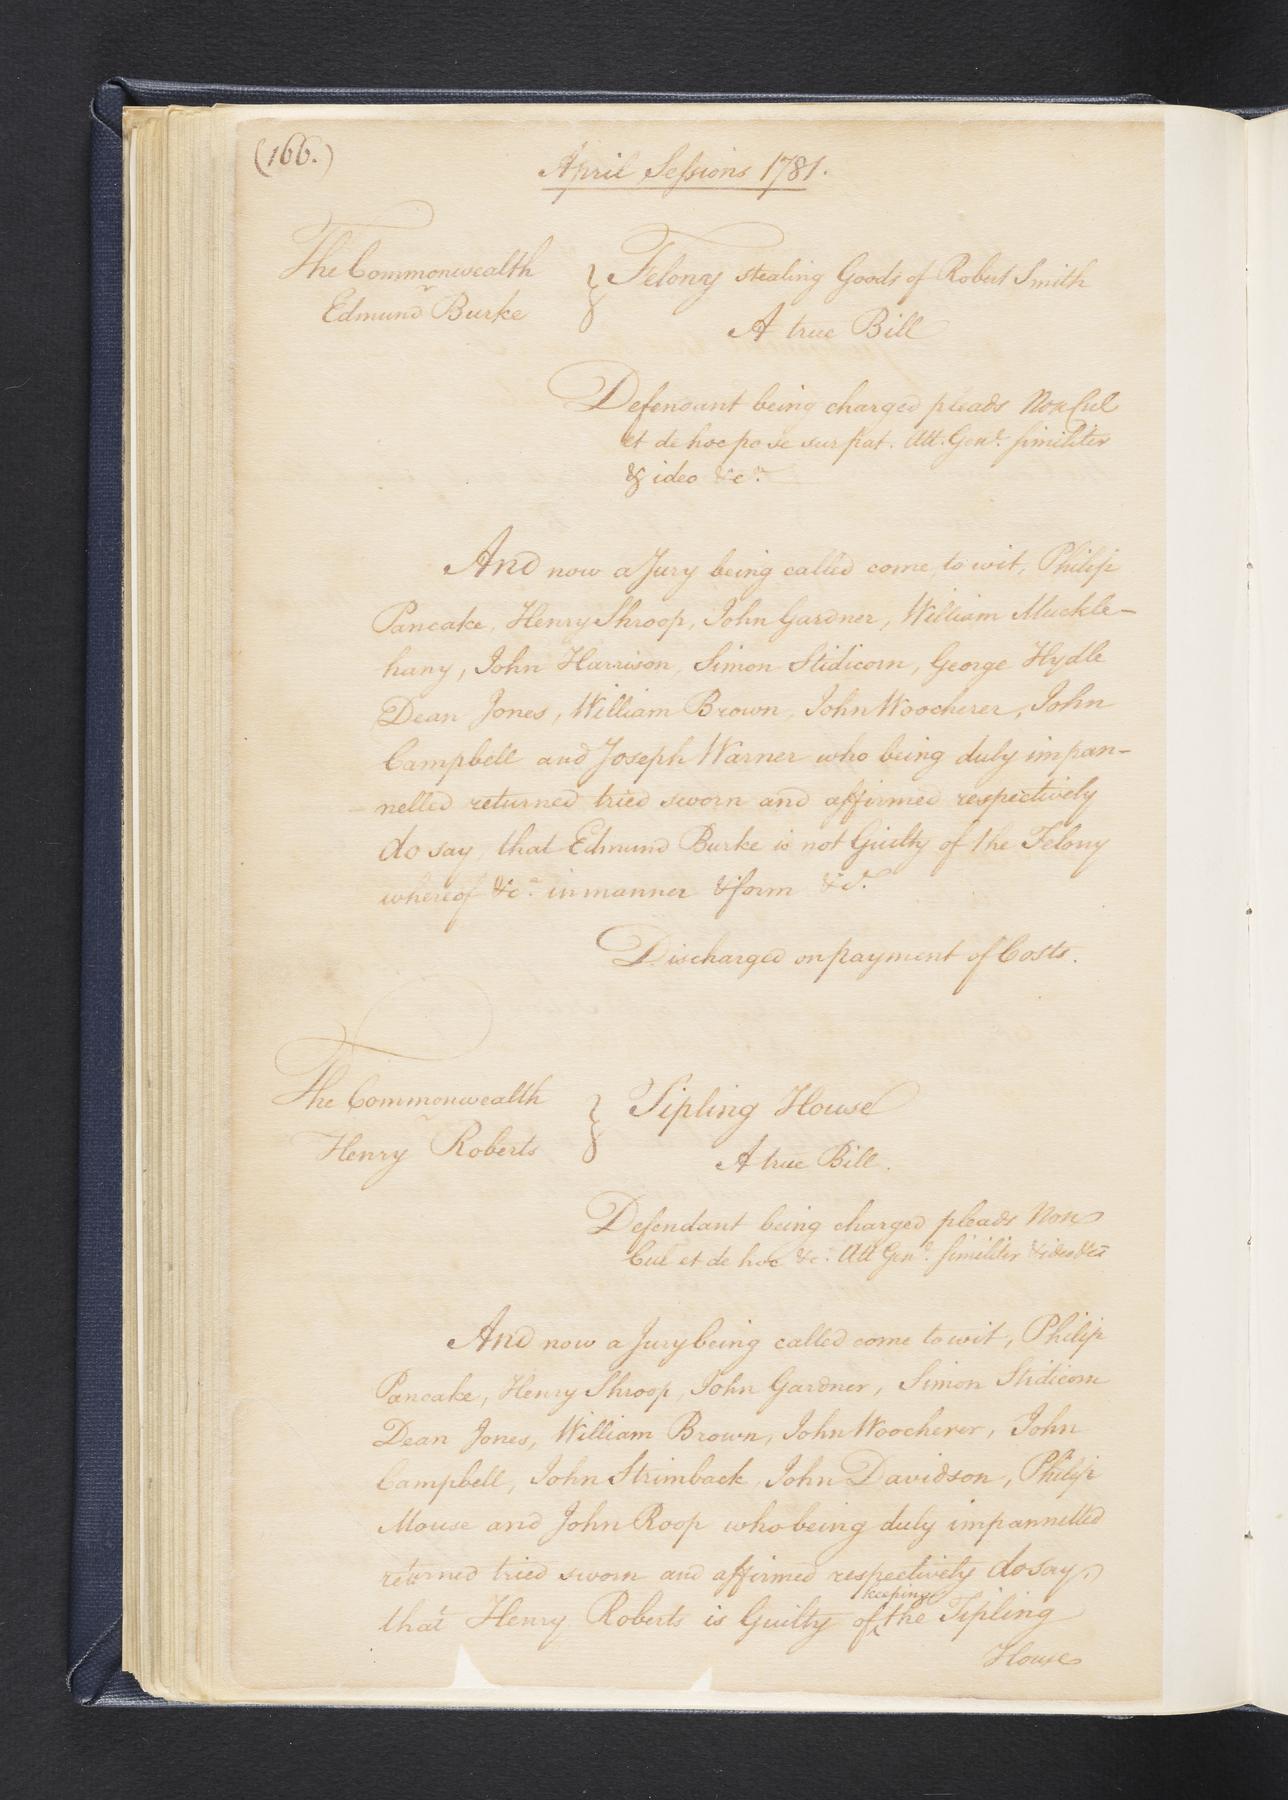 (166.)
April Sessions 1781.
The Commonwealth
v
Edmund Burke
Felony stealing Goods of Robert Smith
A true Bill
Defendant being charged pleads Non Cul
et de hoc po se sur pat. Att. Genl. similiter
& ideo &ca.
And now a Jury being called come, to wit, Philip
Pancake, Henry Shroop, John Gardner, William Muckle-
hany, John Harrison, Simon Stidicorn, George Hydle
Dean Jones, William Brown, John Woocherer, John
Campbell and Joseph Warner who being duly impan-
nelled returned tried sworn and affirmed respectively
do say, that Edmund Burke is not Guilty of the Felony
whereof &ca. in manner & form &ca.
Discharged on payment of Costs.
The Commonwealth
v
Henry Roberts
Tipling House
A true Bill.
Defendant being charged pleads Non
Cul et de hoc &c. Att Genl. similiter & ideo &ca
And now a Jury being called come to wit, Philip
Pancake, Henry Shroop, John Gardner, Simon Stidicorn
Dean Jones, William Brown, John Woocherer, John
Campbell, John Strimback, John Davidson, Philip
Mouse and John Roop who being duly impannelled
returned tried sworn and affirmed respectively do say,
that Henry Roberts is Guilty of keeping the Tipling
House